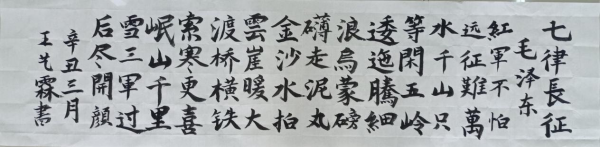 七律長征
毛泽东
紅軍不怕
远征難萬
水千山只
等閑五岭
逶迤騰細
浪烏蒙磅
礴走泥丸
金沙水拍
雲崖暖大
渡桥橫铁
索寒更喜
岷山千里
雪三軍过
后尽開顔
辛丑三月
王艺霖書